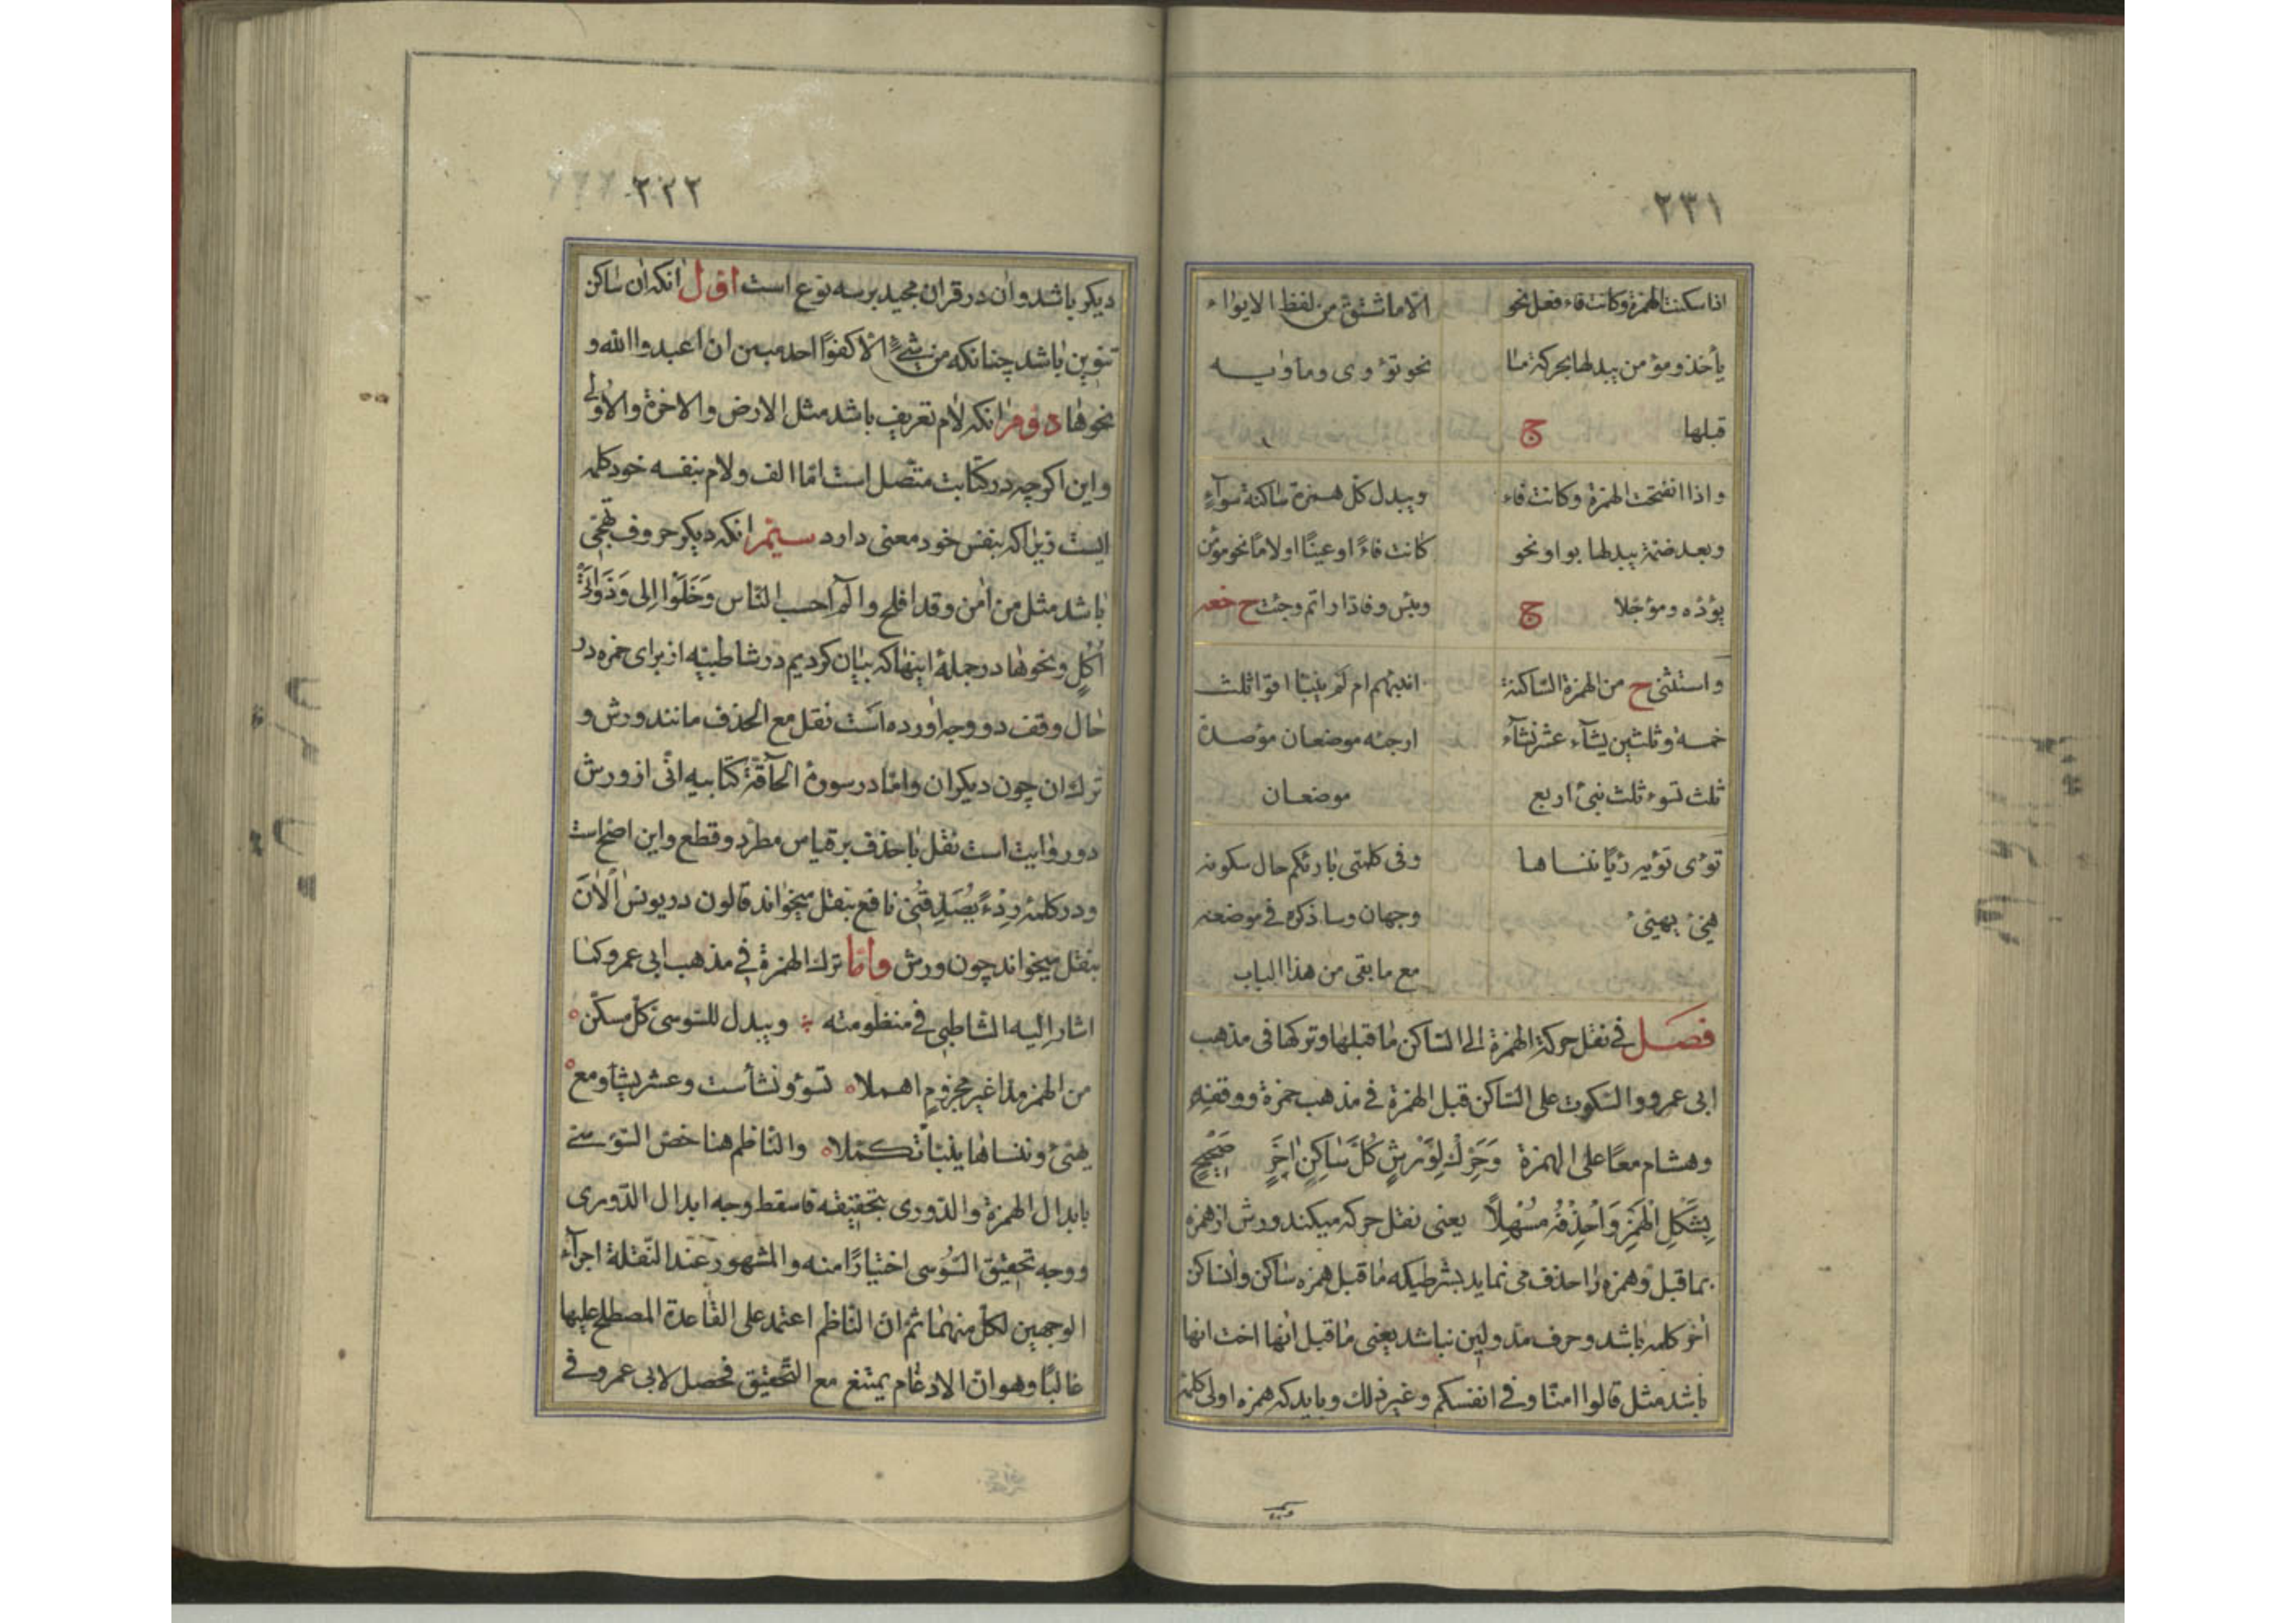 ٢٣١
اذا سكنت الهمزة وكانت فاء فعل نحو
يأخذ ومؤمن يبدلها بحركة ما
قبلها ج
الا ما شتق من لفظ الايواء
نحو تؤوى وماويه
واذا انفتحت الهمزة وكانت فاء
وبعد ضمّة يبدلها بواو نحو
يؤدّه ومؤجّلا ج
ويبدل كلّ همزة ساكنة سوآء
كانت فاءً او عينًا او لامًا نحو مؤمن
وبئس وفادّاراتم وجئت ح
واستثنى ح من الهمزة السّاكنة
خمسة وثلثين يشآء عشر نشآء
ثلث تسوء ثلث نبئ اربع
انبئهم ام لم ينبّأ اقرا ثلث
ارجئه موضعان مؤصدة
موضعان
تؤى تؤيه رئيًا ننساها
هيّئ يهيّئ
وفى كلمتى بارئكم حال سكونه
وجهان وساذكره فى موضعه
مع ما بقى من هذا الباب
فصل فى نقل حركة الهمزة الى السّاكن ما قبلها وتركها فى مذهب
ابى عمرو والسّكوت على السّاكن قبل الهمزة فى مذهب حمزة ووقفه
وهشام معًا على الهمزة وَحَرِّكْ لِوَرْشٍ كُلَّ سَاكِنٍ اٰخِرٍ صَحِيْحٍ
بِشَكْلِ الْهَمْزِ وَاحْذِفْهُ مُسْهِلاً يعنى نقل حركه ميكند ورش از همزه
بماقبل وهمزه را حذف مى نمايد بشرطيكه ماقبل همزه ساكن وان ساكن
اخر كلمه باشد وحرف مدّ ولين نباشد يعنى ماقبل انها اخت انها
باشد مثل قالوا امنّا وفى انفسكم وغير ذلك وبايد كه همزه اولى كلمه
٢٢٢
ديكر باشد وان در قران مجيد برسه نوع است اوّل انكه ان ساكن
تنوين باشد چنانكه من شئ الا كفوًا احد مبين ان اعبدوا الله و
نحوها دوّم انكه لام تعريف باشد مثل الارض والاخرة والاولى
واين اكرچه در كتابت متّصل است امّا الف ولام بنفسه خود كلمه
ايست زيراكه بنفس خود معنى دارد سيّم انكه ديكر حروف تهجّى
باشد مثل من اٰمن وقد افلح والٓم احسب النّاس وَخَلَوْا اِلى وَذَوَاتَىْ
اُكُلٍ ونحوها در جملهٔ اينها كه بيان كرديم در شاطبيّه از براى حمزه در
حال وقف دو وجه اورده است نقل مع الحذف مانند ورش و
ترك ان چون ديكران وامّا در سورهٔ الحآقّة كتابيه انّى از ورش
دو روايت است نقل با حذف بر قياس مطرد وقطع واين اصحّ است
ودر كلمهٔ رِدْءً يُصَدِّقُنى نافع بنقل ميخواند قالون در يونس اٰلْاٰنَ
بنقل ميخواند چون ورش وامّا ترك الهمزة فى مذهب ابى عمرو كما
اشار اليه الشّاطبى فى منظومته ويبدل للسّوسىّ كلّ مسكّن
من الهمز مدّا غير مجزومٍ اهملا تسؤ ونشأ ستّ وعشر يشأ ومع
يهيّئ وننساها ينبّأ تكمّلا والنّاظم هنا خصّ السّوسى
بابدال الهمزة والدّورى بتحقيقه فاسقط وجه ابدال الدّورى
ووجه تحقيق السّوسى اختيارًا منه والمشهور عند النّقلة اجرآء
الوجهين لكلّ منهما ثمّ انّ النّاظم اعتمد على القاعدة المصطلح عليها
غالبًا وهو انّ الادغام يمتنع مع التّحقيق فحصل لابى عمرو فى